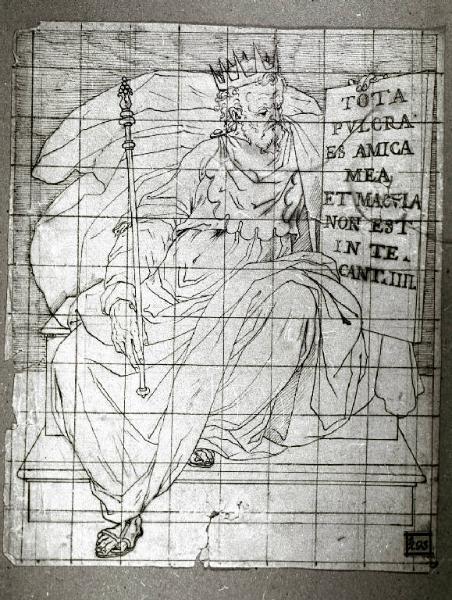 TOTA
PVLCRA
ES AMICA
MEA
ET MACVLA
NON EST
IN TE.
CANT. IIII.